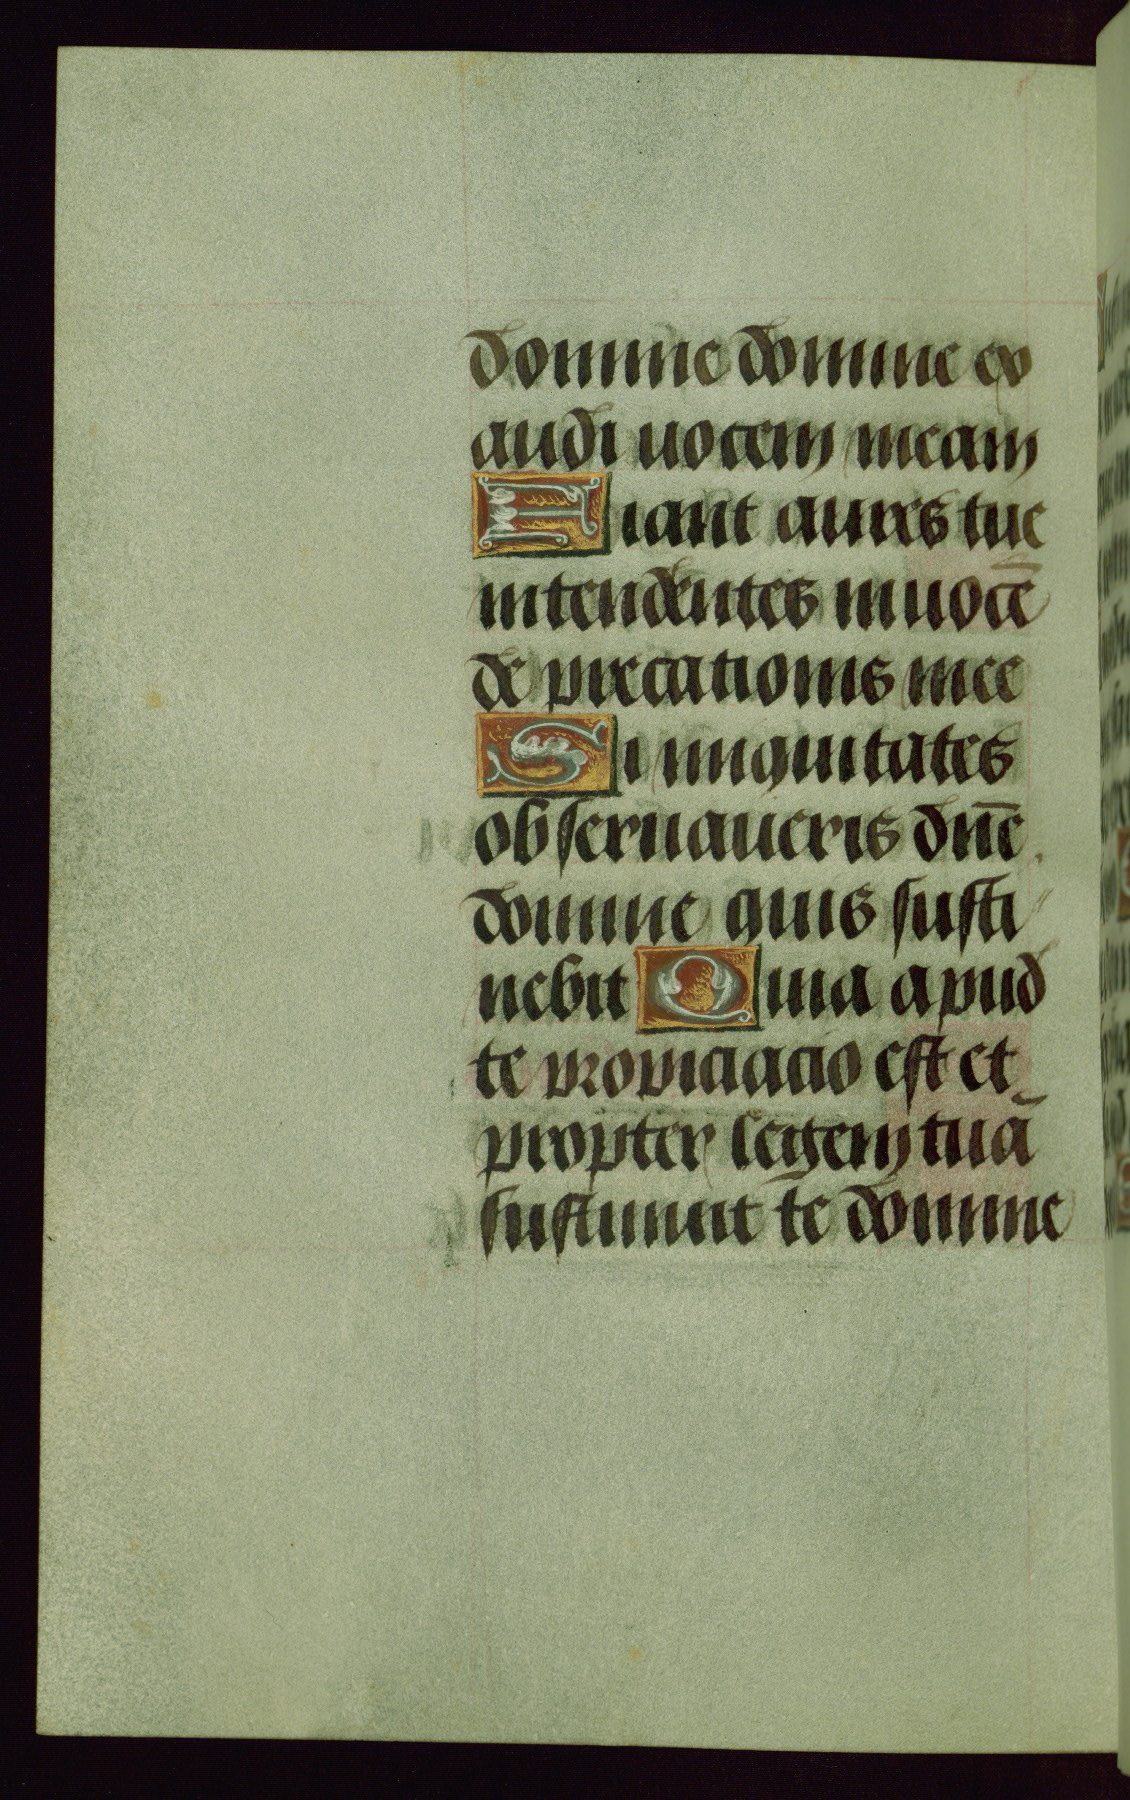 domine domine ex
audi uocem meam
Fiant aures tue
intendentes in uocē
de precationis mee
Si iniquitates
obseruaueris dn̄e
domine quis susti
nebit Quia apud
te propiciacio est et
propter legem tuā
sustinui te domine